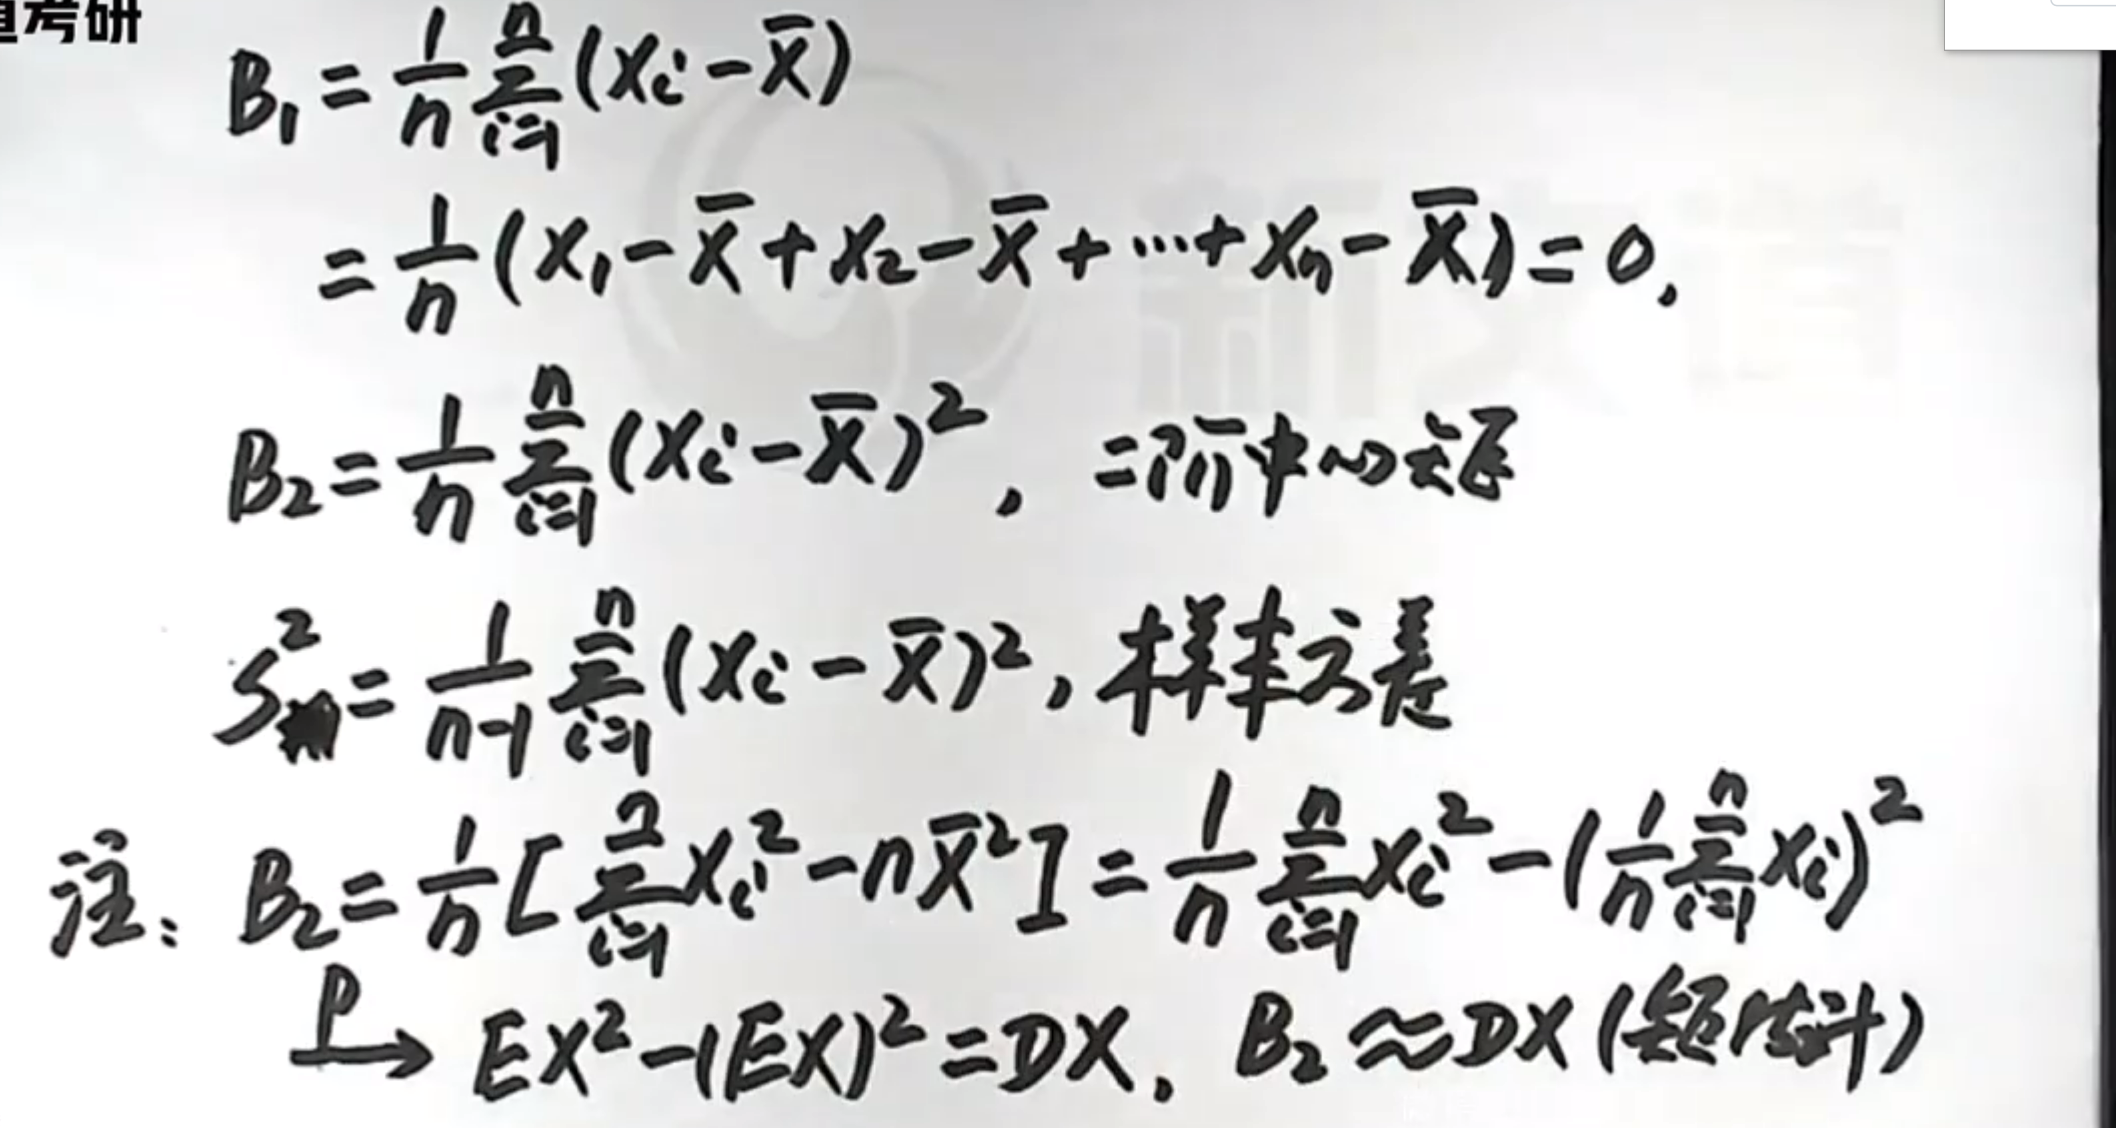 考研
B₁ = 1/n ∑ᵢ₌₁ⁿ (Xᵢ - X̄)
= 1/n (X₁ - X̄ + X₂ - X̄ + ⋯ + Xₙ - X̄) = 0,
B₂ = 1/n ∑ᵢ₌₁ⁿ (Xᵢ - X̄)², 二阶中心矩
S² = 1/(n-1) ∑ᵢ₌₁ⁿ (Xᵢ - X̄)², 样本方差
注: B₂ = 1/n [∑ᵢ₌₁ⁿ Xᵢ² - nX̄²] = 1/n ∑ᵢ₌₁ⁿ Xᵢ² - (1/n ∑ᵢ₌₁ⁿ Xᵢ)²
P→ EX² - (EX)² = DX, B₂ ≈ DX (矩估计)
新文道